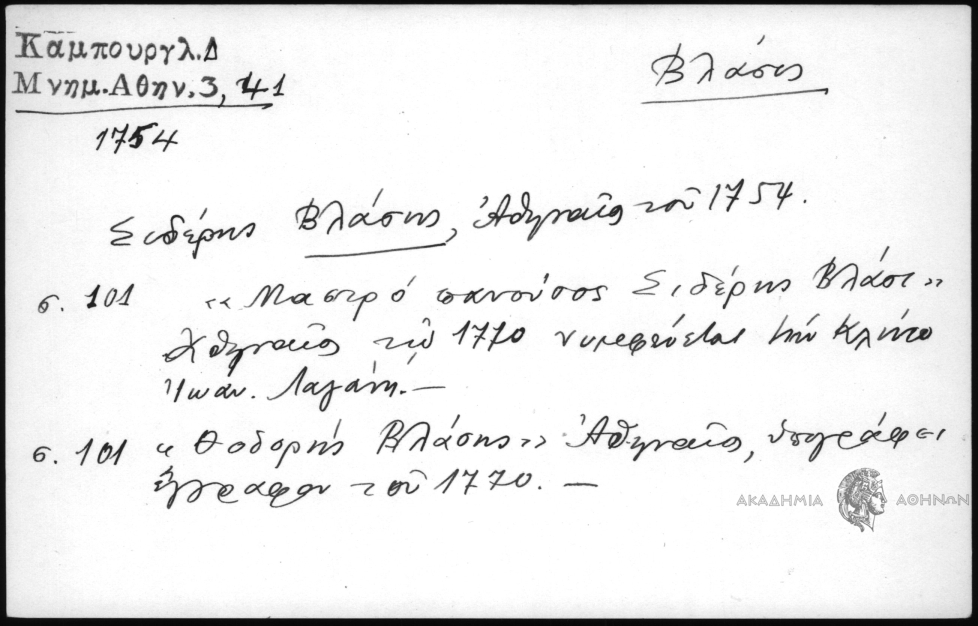 Καμπουργλ.Δ
Μνημ.Αθην.3, 41
1754
Βλάσης
Σιδέρης Βλάσης, Ἀθηναῖος τοῦ 1754.
σ. 101 «Μαστρό πανούσος Σιδέρης Βλάσι»
Ἀθηναῖος τοῦ 1770 νυμφεύεται τήν
Ἰωάν. Λαγάνη.—
σ. 101 «Θοδορής Βλάσης» Ἀθηναῖος, ὑπογράφει
ἔγγραφον τοῦ 1770. —
ΑΚΑΔΗΜΙΑ ΑΘΗΝΩΝ